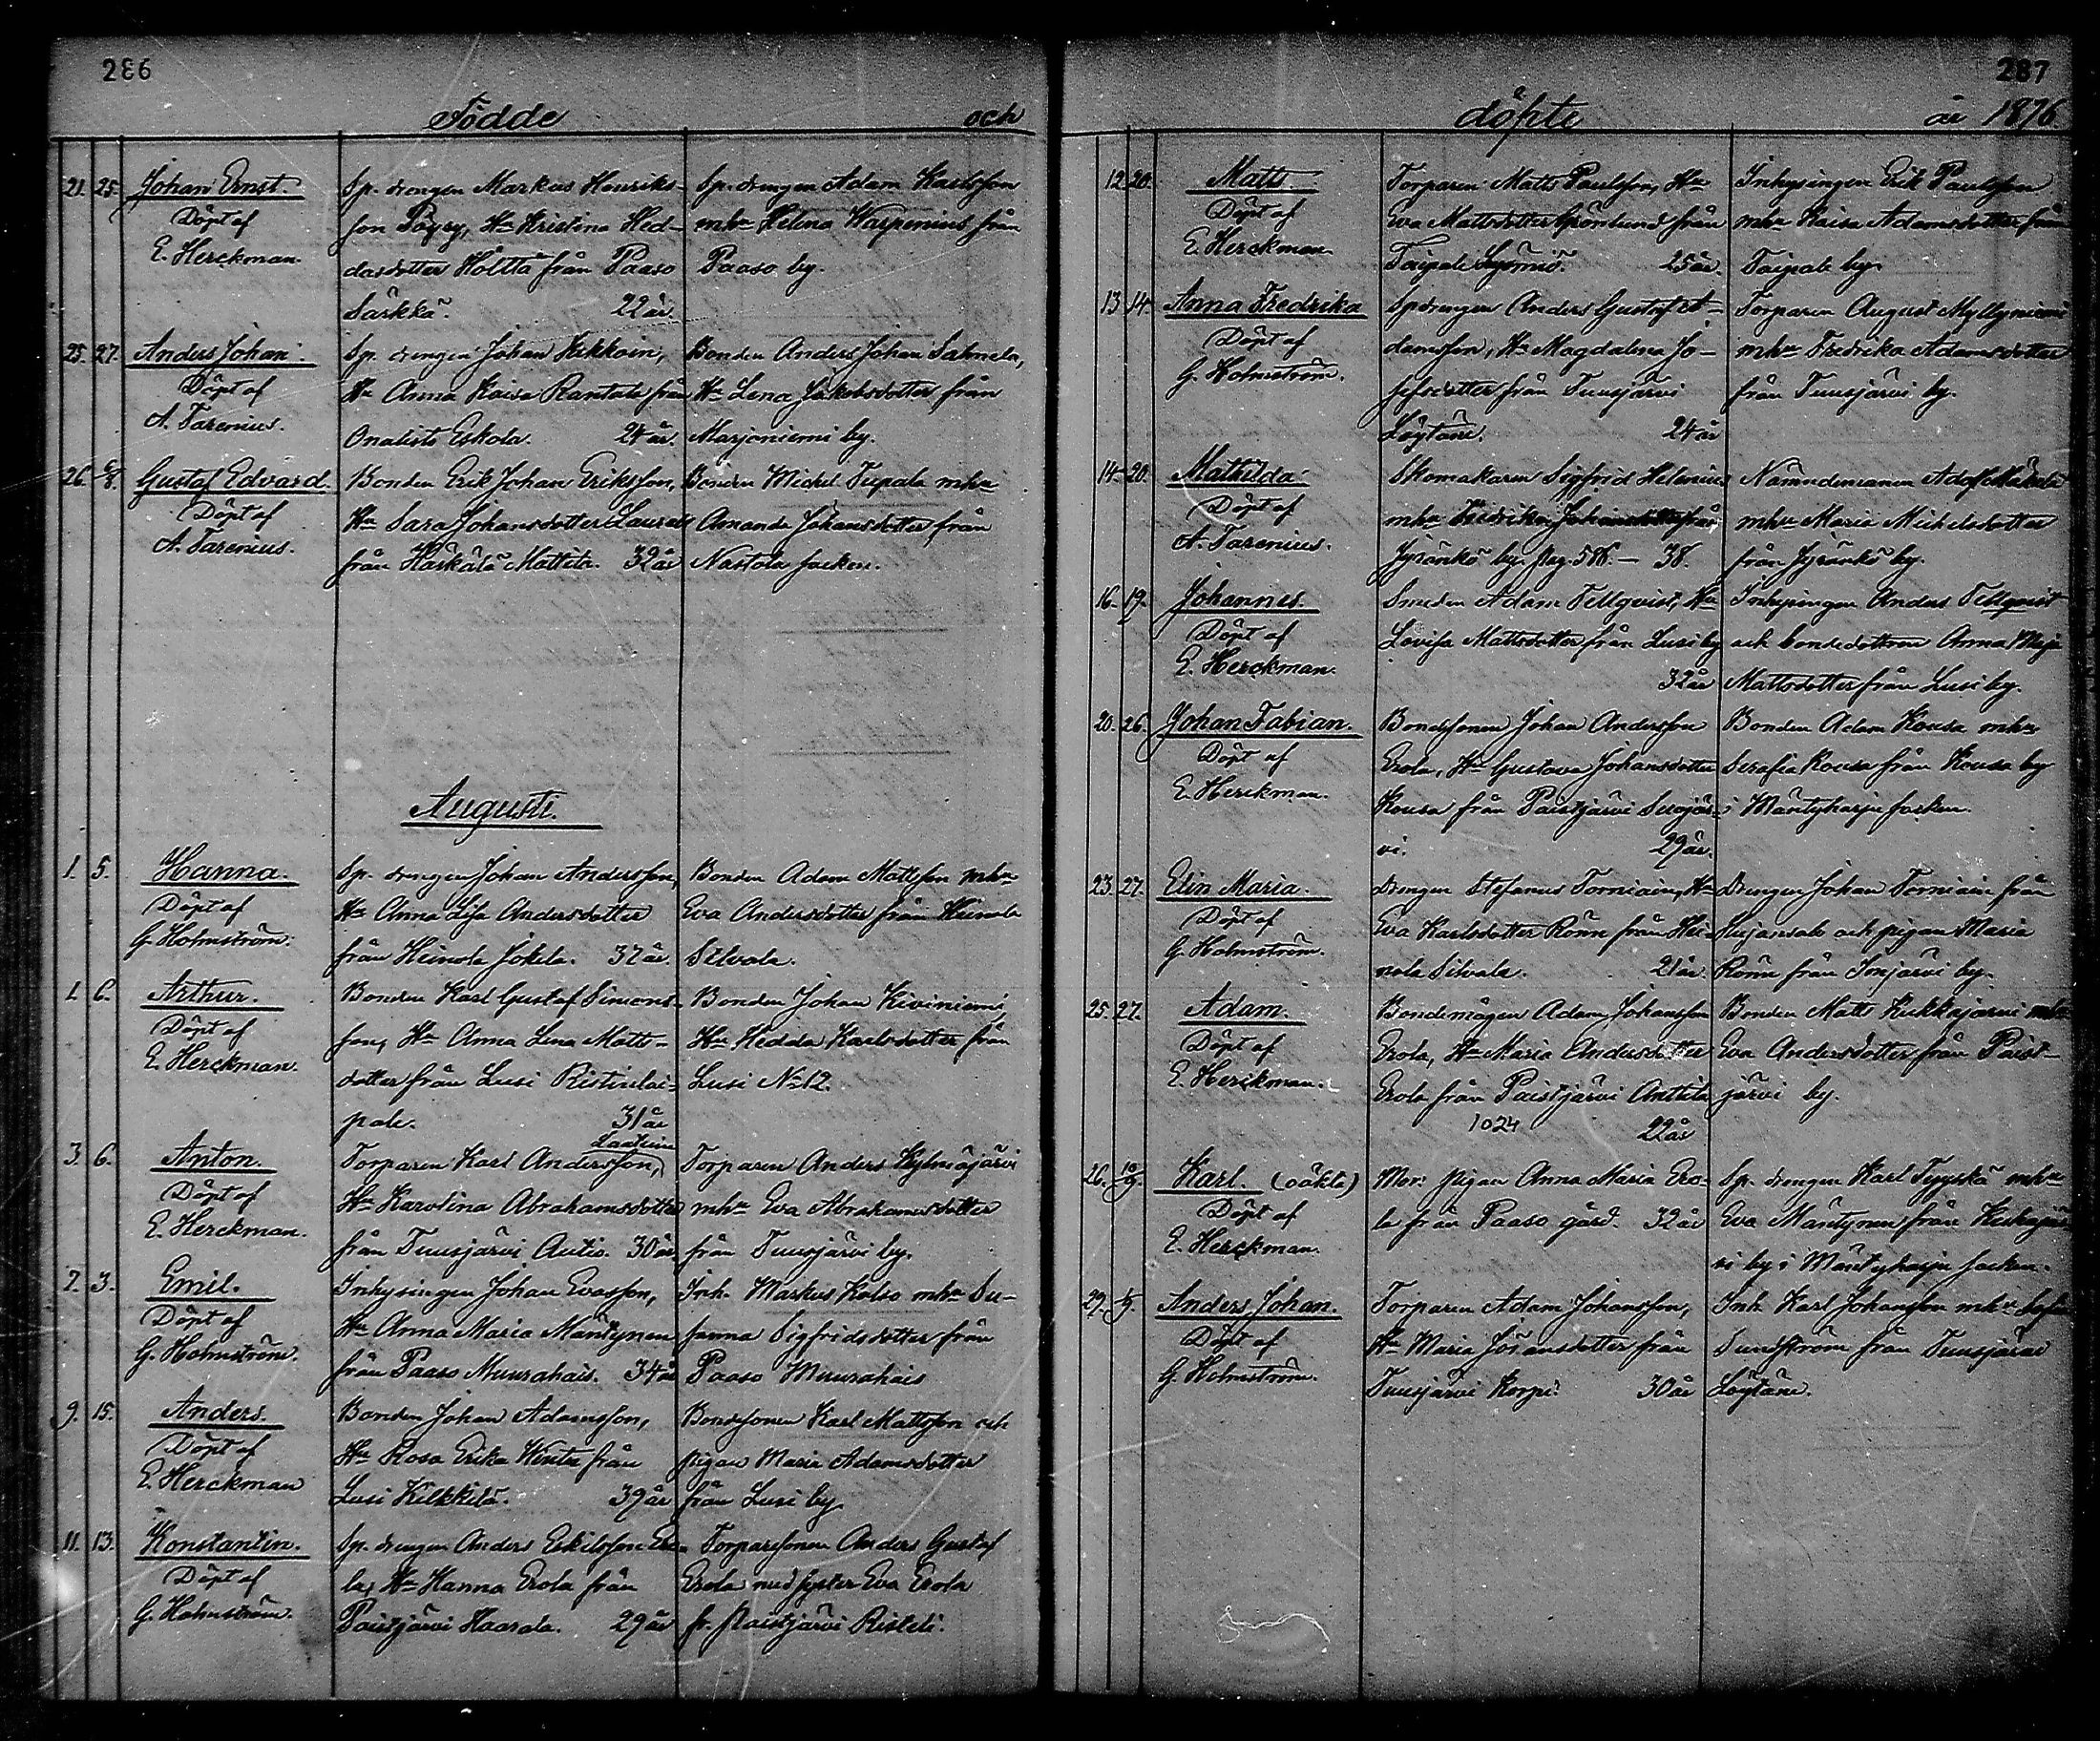 286
Födde och
21. 25. Johan Ernst. Sp. drengen Markus Henriks- Sp. drengen Adam Karlsson
Döpt af son Pöyry, Hu Kristina Hed- mhu Helena Warpenius från
E. Herckman. dasdotter Höltta från Paaso Paaso by.
Särkkä. 22 år.
25. 27. Anders Johan. Sp. drengen Johan Kekkoin, Bonden Anders Johan Salmela,
Döpt af Hu Anna Kaisa Rantala från Hu Lena Jakobsdotter från
A. Tarenius. Onalisto Eskola. 24 år. Marjoniemi by.
26. 6/8. Gustaf Edvard. Bonden Erik Johan Eriksson, Bonden Michel Tupala mhu
Döpt af Hu Sara Johansdotter Amanda Johansdotter från
A. Tarenius. från Härkälä Mattila. 32 år Nastola socken.
Augusti.
1. 5. Hanna. Sp. drengen Johan Andersson, Bonden Adam Mattsson mhu
Döpt af Hu Anna Lisa Andersdotter Eva Andersdotter från Heinola
G. Holmström. från Heinola Jokela. 37 år. Silvola.
1. 6. Arthur. Bonden Karl Gustaf Simons- Bonden Johan Kiviniemi
Döpt af son, Hu Anna Lena Matts- Hu Hedda Karlsdotter från
E. Herckman. dotter från Lusi Ristintai- Lusi No 12.
pale. 31 år
3. 6. Anton. Torparen Karl Andersson, Torparen Anders Kylmäjärvi
Döpt af Hu Karolina Abrahamsdotter mhu Eva Abrahamsdotter
E. Herckman. från Tuusjärvi Autio. 30 år. från Tuusjärvi by.
2. 3. Emil. Inhysingen Johan Evasson, Inh. Markus Kolso mhu Su-
Döpt af Hu Anna Maria Mäntynen sanna Sigfridsdotter från
G. Holmström. från Paaso Muurahais. 34 år Paaso Muurahais
9. 15. Anders. Bonden Johan Adamsson, Bondesonen Karl Mattsson och
Döpt af Hu Rosa Erika från pigan Maria Adamsdotter
E. Herckman Lusi Kilkkilä. 39 år från Lusi by.
11. 13. Konstantin. Sp. drengen Anders Eskilsson Ero- Torparesonen Anders Gustaf
Döpt af la, Hu Hanna Erola från Erola med syster Eva Erola
G. Holmström. Paistjärvi Haarala. 29 år fr. Paistjärvi Risteli.
287
döpte år 1876.
12. 20. Matts. Torparen Matts Paulsson, Hu Inhysingen Erik Paulsson
Döpt af Eva Mattsdotter Grönlund från mhu Kaisa Adamsdotter från
E. Herckman Taipale 25 år. Taipale by.
13. 14. Anna Fredrika Spdrengen Anders Gustaf A- Torparen August Myllyniemi
Döpt af damsson, Hu Magdalena Jo- mhu Fredrika Adamsdotter
G. Holmström. sefsdotter från Tuusjärvi från Tuusjärvi by.
Löytäne. 24 år
14. 20. Mathilda Skomakaren Sigfrid Helenius Nämndemannen Adolf Mäkelä
Döpt af mhu Fredrika Johansdotter från mhu Maria Michelsdotter
A. Tarenius. Jyränkö by. pag. 586. — 38. från Jyränkö by.
16. 19. Johannes. Smeden Adam Tellqvist, Hu Inhysingen Anders Tellqvist
Döpt af Lovisa Mattsdotter från Lusi by och bondedottren Anna Maja
E. Herckman. 32 år Mattsdotter från Lusi by.
20. 26. Johan Fabian. Bondesonen Johan Andersson Bonden Adam Kousa mhu
Döpt af Erola, Hu Gustava Johansdotter Serafia Kousa från Kousa by
E. Herckman. Kousa från Paistjärvi Suojär- i Mäntyharju socken.
vi. 29 år.
23. 27. Elin Maria. Drengen Stefanus Torniain, Hu Drengen Johan Torniain från
Döpt af Eva Karlsdotter Rönn från Hei- Hujansalo och pigan Maria
G. Holmström. nola Silvola. 21 år. Rönn från Imjärvi by.
25. 27. Adam. Bondemågen Adam Johansson Bonden Matts Kukkajärvi mhu
Döpt af Erola, Hu Maria Andersdotter Eva Andersdotter från Paist-
E. Herckman. Erola från Paistjärvi Anttila järvi by.
1024 22 år
26. 10/9. Karl. (oäkta) Mor: pigan Anna Maria Ero- Sp. drengen Karl Tyyskä mhu
Döpt af la från Paaso gård. 32 år Eva Mäntynen från
E. Herckman. vi by i Mäntyharju socken.
29. Anders Johan. Torparen Adam Johansson, Inh. Karl Johansson mhu
Döpt af Hu Maria Johansdotter från Sundström från Tuusjärvi
G. Holmström. Tuusjärvi Korpi. 30 år Löytäne.